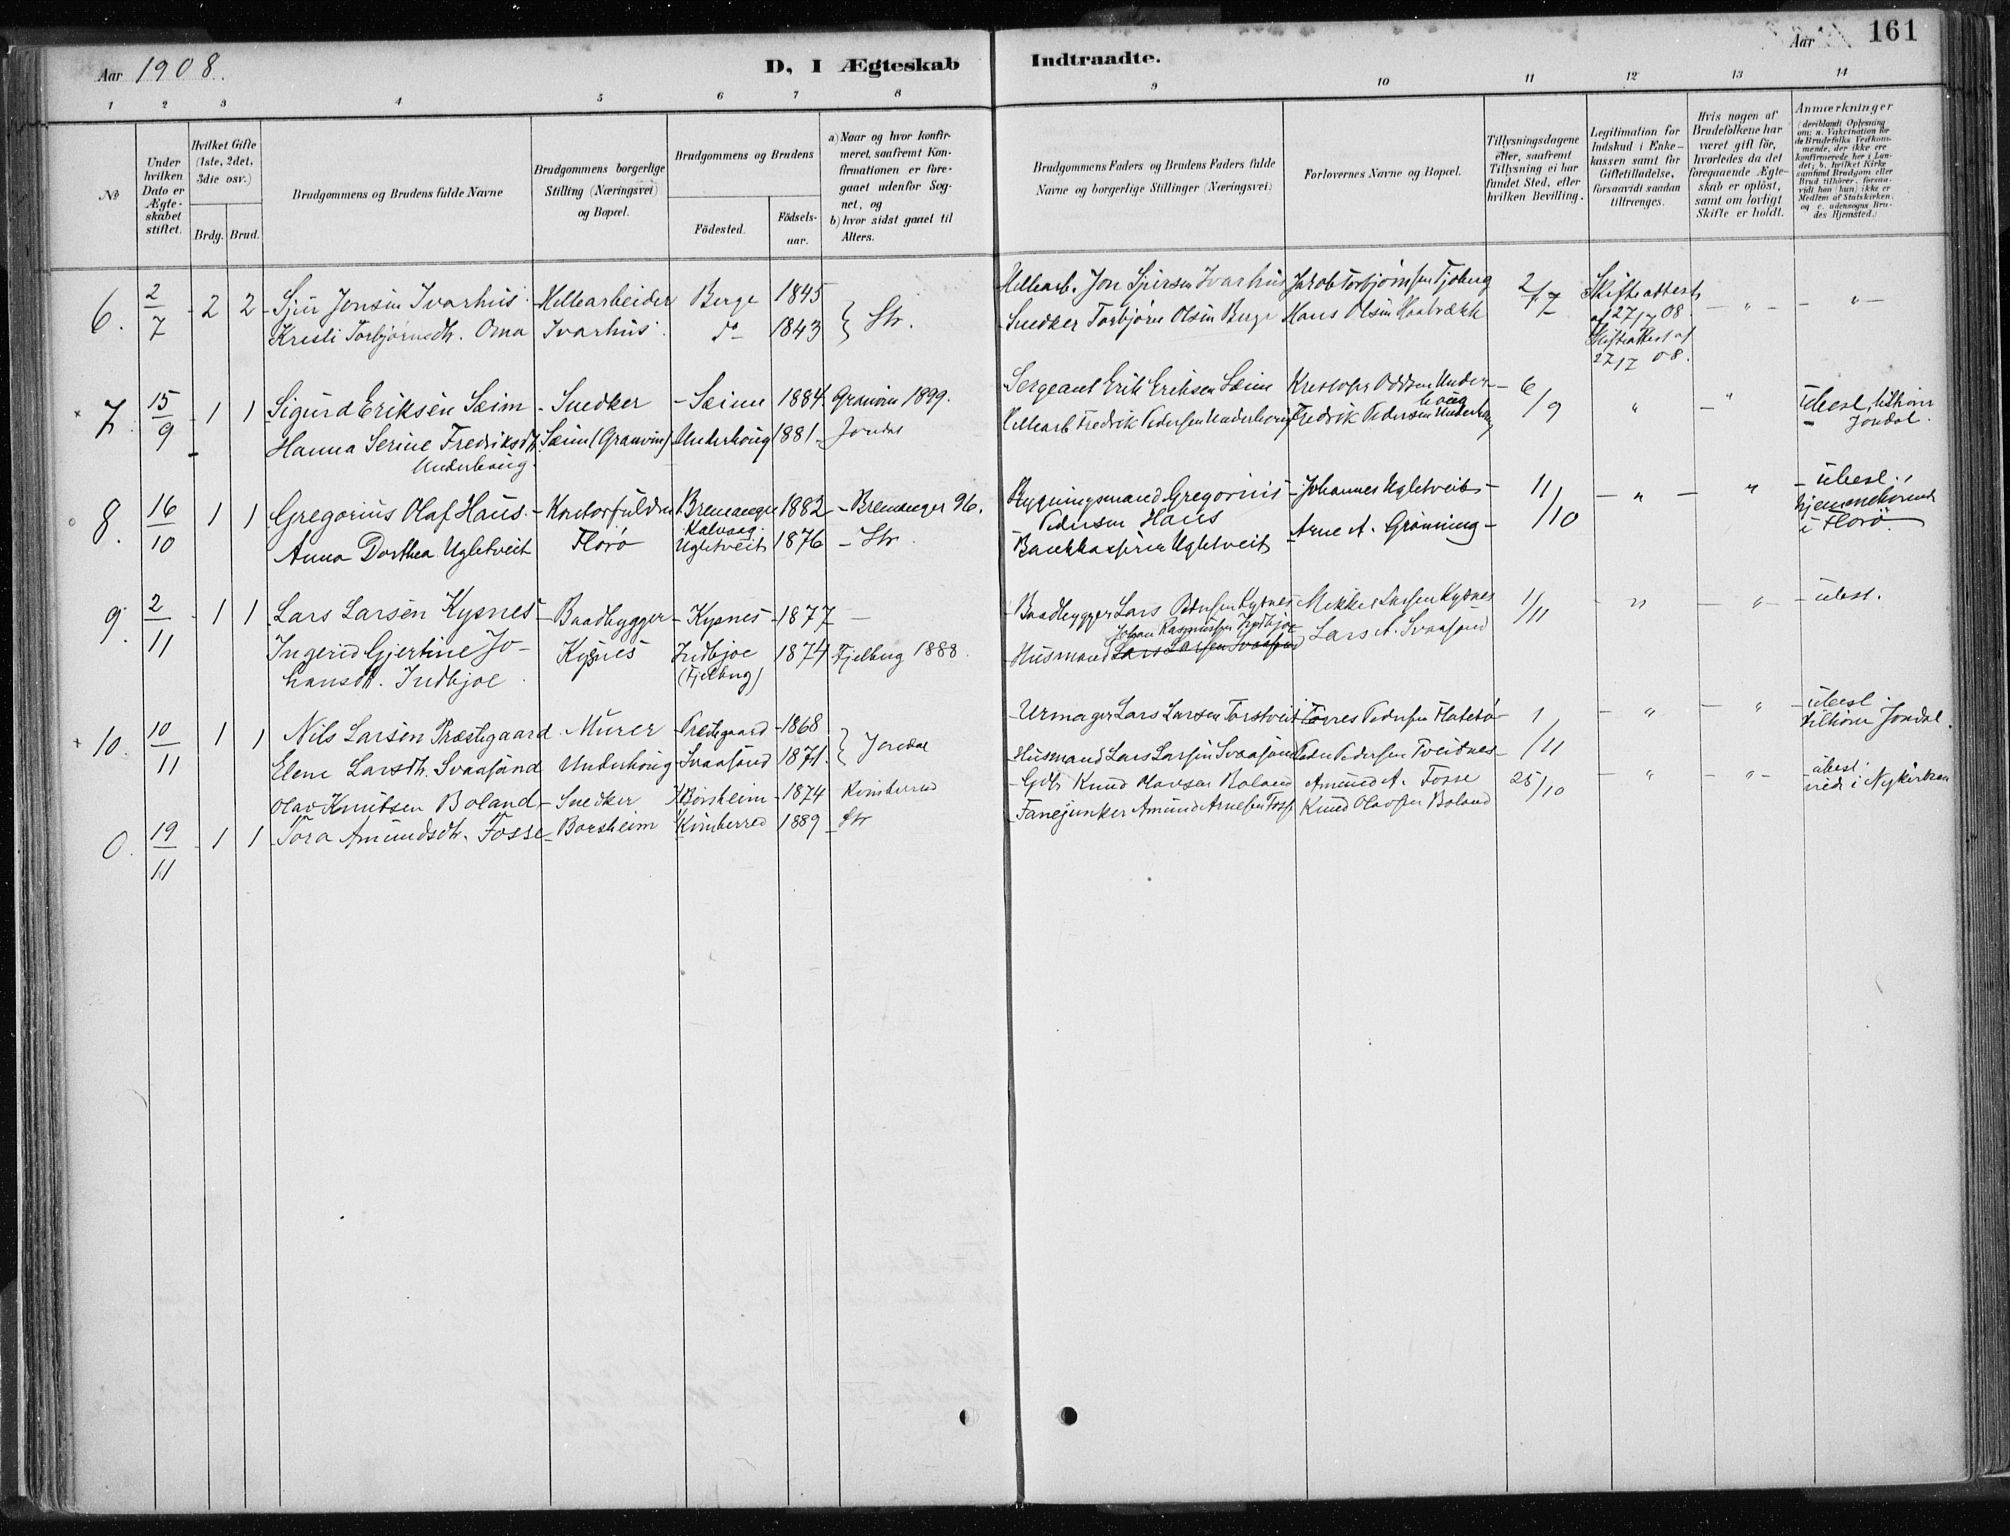 Aar 1908.
D, I Ægteskab Indtraadte.
Aar 161
1 2 3 4 5 6 7 8 9 10 11 12 13 14
№
Under hvilken Dato er Ægteskabet stiftet.
Hvilket Gifte (1ste, 2det, 3die osv.)
Brdg. Brud.
Brudgommens og Brudens fulde Navne
Brudgommens borgerlige Stilling (Næringsvei) og Bopæl.
Brudgommens og Brudens
Födested.
Födselsaar.
a) Naar og hvor konfirmeret, saafremt Konfirmationen er foregaaet udenfor Sognet, og
b) hvor sidst gaaet til Alters.
Brudgommens Faders og Brudens Faders fulde Navne og borgerlige Stillinger (Næringsvei)
Forlovernes Navne og Bopæl.
Tillysningsdagene eller, saafremt Tillysning ei har fundet Sted, efter hvilken Bevilling.
Legitimation for Indskud i Enkekassen samt for Giftetilladelse, forsaavidt saadan tiltrænges.
Hvis nogen af Brudefolkene har været gift för, hvorledes da det foregaaende Ægteskab er oplöst, samt om lovligt Skifte er holdt.
Anmærkninger (deriblandt Oplysning om: a. Vakcination for de Brudefolks Vedkommende, der ikke ere konfirmerede her i Landet; b. hvilket Kirkesamfund Brudgom eller Brud tilhörer, forsaavidt han (hun) ikke er Medlem af Statskirken, og c. udensogns Brudes Hjemsted.)
6. 2/7 2 2 Sjur Jonsen Ivarhus Hellearbeider Berge 1845 } Str. Hellearb. Jon Sjursen Ivarhus Jakob Torbjørnsen Tjoberg 2/7 Skifteattest
Kristi Torbjørnsdtr. Oma Ivarhus. do 1843 Snedker Torbjørn Olsen Berge Hans Olsen af 27/7 08 - " - - " -
Skifteattest af
27/7 08.
7. 15/9 1 1 Sigurd Eriksen Sæim - Snedker - Sæim 1884 Granvin 1899. Sergeant Erik Eriksen Sæim Kristofer Oddsen Under- 6/9 " - " Ubesl. tilhører
haug
Hanna Serine Fredriksdtr. Sæim (Granvin) Underhoug 1881 Jondal Hellearb Fredrik Pedersen Underhoug Fredrik Pedersen Underhoug Jondal.
Underhoug.
8. 16/10 1 1 Gregorius Olaf Haus. - Kontorfuldm Bremanger 1882 - Bremanger 96. Bygningsmand Gregorius - Johannes Ugletveit - 11/10 - " - " - ubesl.,
Kalvaag Pedersen Haus hjemmehørende
Anna Dorthea Ugletveit Florø Ugletveit 1876 - Str. Ugletveit Arne A. Grønning - i Florø
9. 2/11 1 1 Lars Larsen Kysnes - Baadbygger - Kysnes - 1877 - - Baadbygger Lars Pedersen Kysnes - Mikkel Larsen Kysnes 1/11 - " - " - - ubesl.
Johan Rasmussen Indbjoe
Ingerid Gjertine Jo- Kysnes Indbjoe 1874 Fjelberg 1888. - Husmand Lars Larsen Svaasand Lars A. Svaasand
hansdtr. Indbjoe. (Fjelberg)
10. 10/11 1 1 Nils Larsen Præstegaard Murer - Prestegaard - 1868 } Jondal - Urmager Lars Larsen Torstveit Tørres Pedersen Flatebø - 1/11 - " - " - ubesl
tilhører Jondal.
Elene Larsdtr. Svaasand Underhoug - Svaasand 1871. Husmand Lars Larsen Svaasand Peder Pedersen Tveitnes -
0. 19/11 1 1 Olav Knutsen Boland - Snedker Børsheim - 1874 Kinherred Gdb Knud Olavsen Boland Amund A. Fosse 25/10 " - " - - ubesl.
viet i Nykirken
Tora Amundsdtr. Fosse Børsheim Kinherred 1889 - Str Fanejunker Amund Arnesen Fosse Knud Olavsen Boland